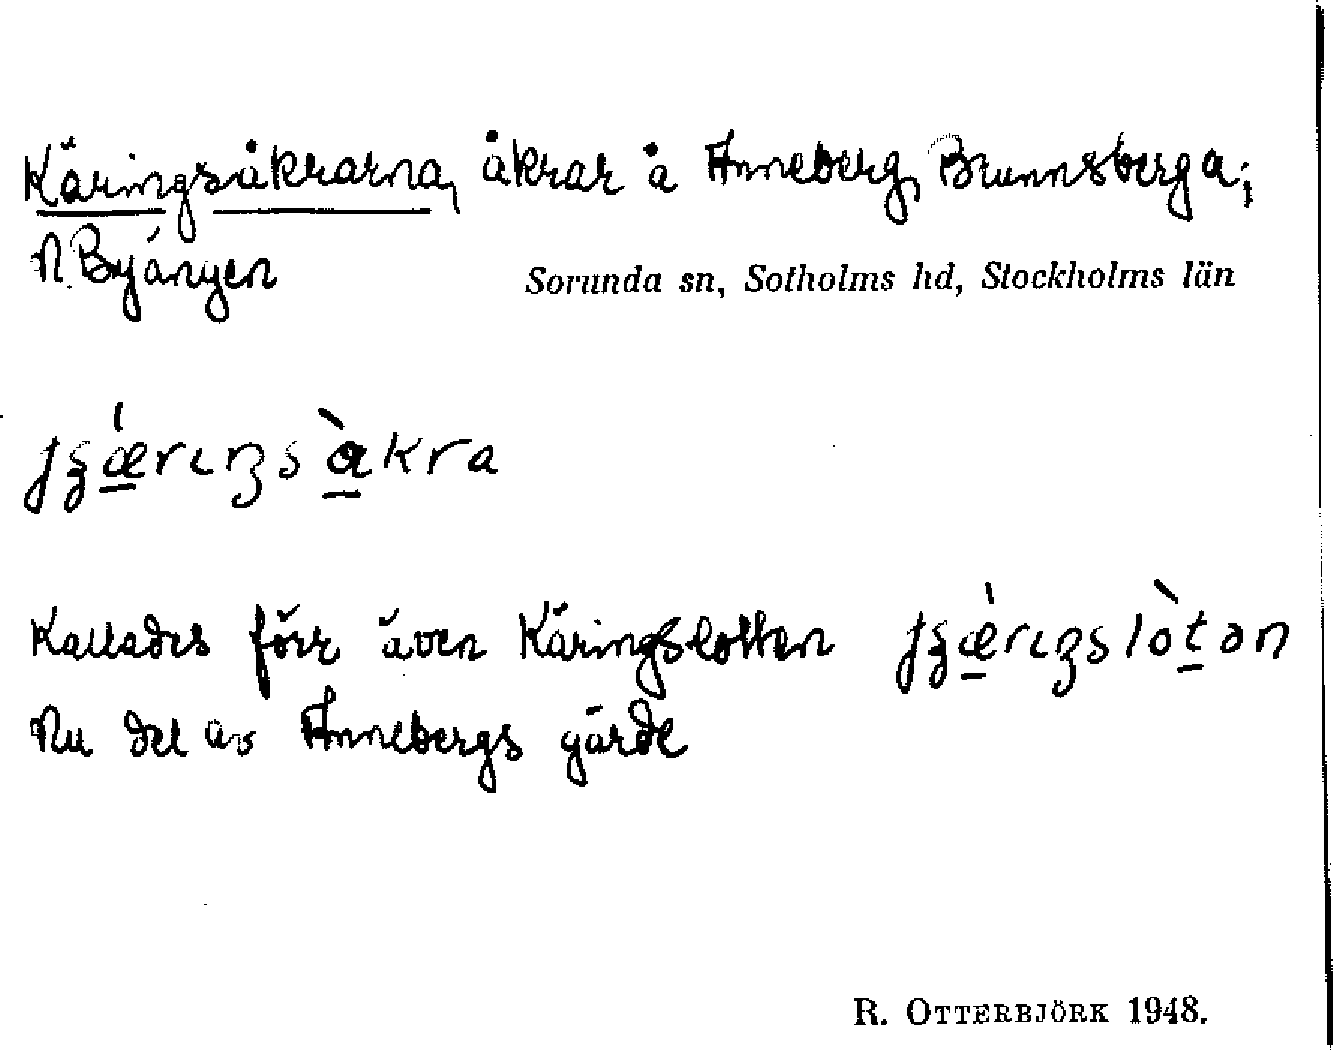 Käringsåkrarna, åkrar å Anneberg, Brunnsberga;
N. Byängen
Sorunda sn, Sotholms hd, Stockholms län
Kallades förr även Käringslotten
Nu del av Annebergs gärde
R. OTTERBJÖRK 1948.